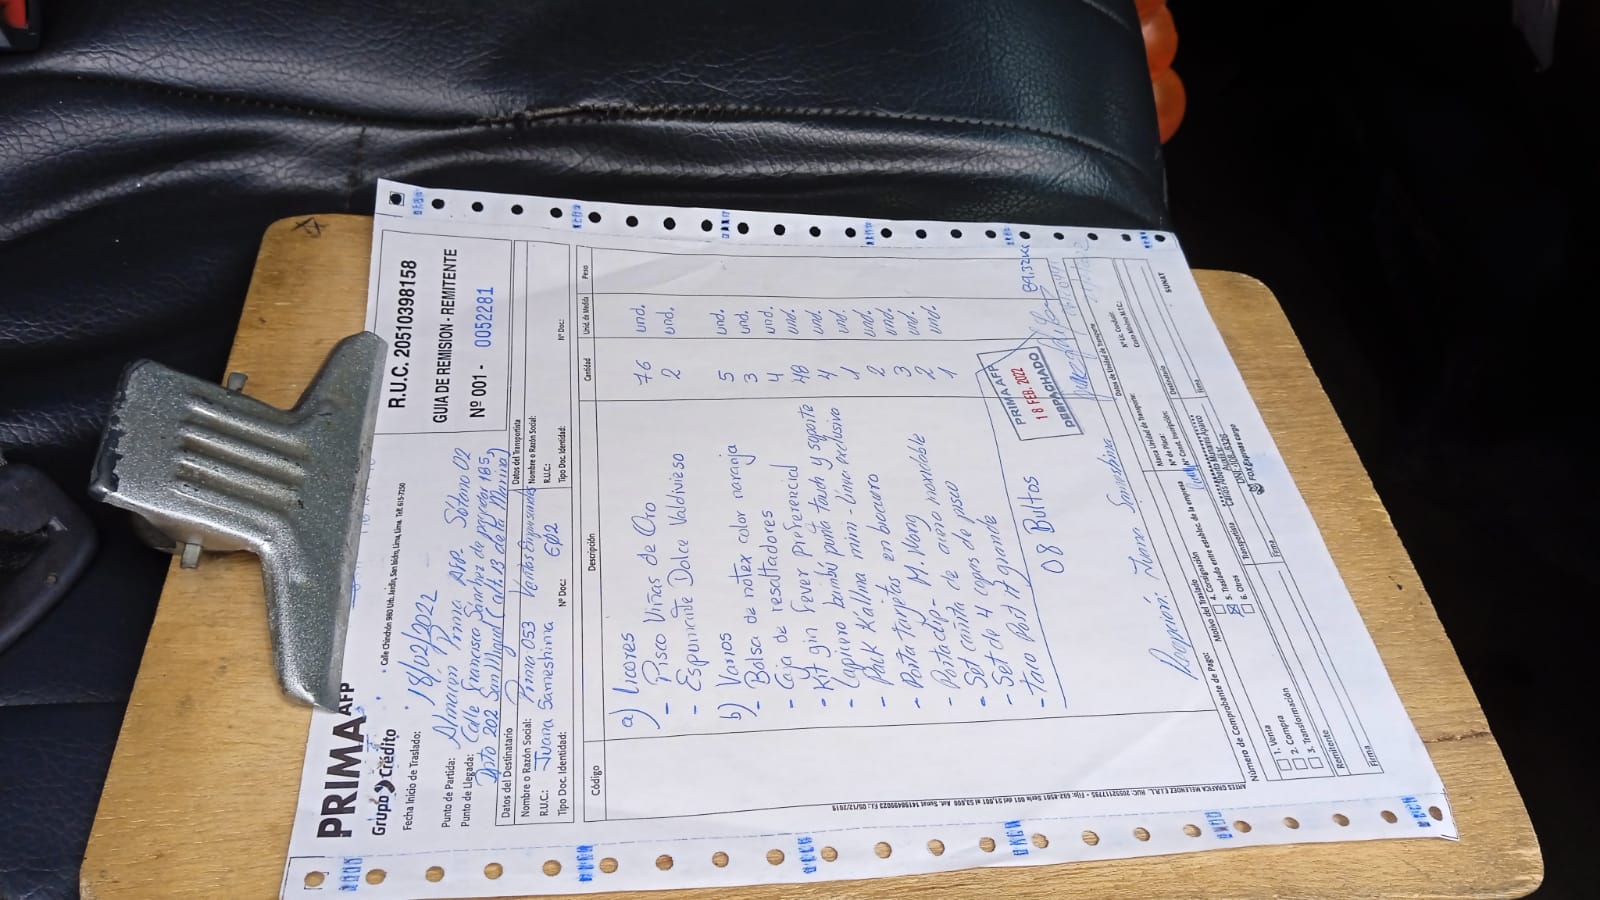 PRIMA AFP
Grupo Crédito
Calle Chinchón 980 Urb. Jardín, San Isidro, Lima, Lima. Telf. 615-7250
R.U.C. 20510398158
GUIA DE REMISION - REMITENTE
Nº 001 - 0052281
Fecha Inicio de Traslado: 18/02/2022
Punto de Partida: Almacén Prima AFP. Sótano 02
Punto de Llegada: Calle Francisco Sánchez de 185,
Dpto 202 San Miguel (alt. 13 de La Marina)
Datos del Destinatario
Nombre o Razón Social: Prima 053 Ventas
R.U.C.: Juana Sameshima 602
Tipo Doc. Identidad: Nº Doc.:
Datos del Transportista
Nombre o Razón Social:
R.U.C.:
Tipo Doc. Identidad: Nº Doc.:
Código Descripción Cantidad Unid. de Medida Peso
a) Licores
- Pisco Viñas de Oro 76 und.
- Espumante Dolce Valdivieso 2 und.
b) Varios
- Bolsa de notex color naranja 5 und.
- Caja de resaltadores 3 und.
- Kit gin Fever preferencial 4 und.
- Lapicero bambú punta touch y soporte 48 und.
- Pack Kallma mini - Lima exclusivo 4 und.
- Porta tarjetas en biocuero 1 und.
- Portaclip - M. Wong 2 und.
- Set cañita de acero inoxidable 3 und.
- Set de 4 copas de pisco 2 und.
- Taco Post it grande 1 und.
08 Bultos
PRIMA AFP
18 FEB. 2022
DESPACHADO
89.32KG
Recepción: Juana Sameshima
ARTES GRAFICA MELENDEZ E.I.R.L. RUC: 20552117795
Número de Comprobante de Pago:
Motivo del Traslado
1. Venta
2. Compra
3. Transformación
4. Consignación
5. Traslado entre establec. de la empresa
6. Otros
Datos de Unidad de Transporte
Marca Unidad de Transporte:
Nº de Placa:
Nº Const. Inscripción:
Nº Lic. Conducir:
Costo Mínimo M.T.C.:
Remitente
Firma
Transportista
Firma
Destinatario
Firma
Carlos Alberto Mamani Aparco
FOX Express cargo
SUNAT